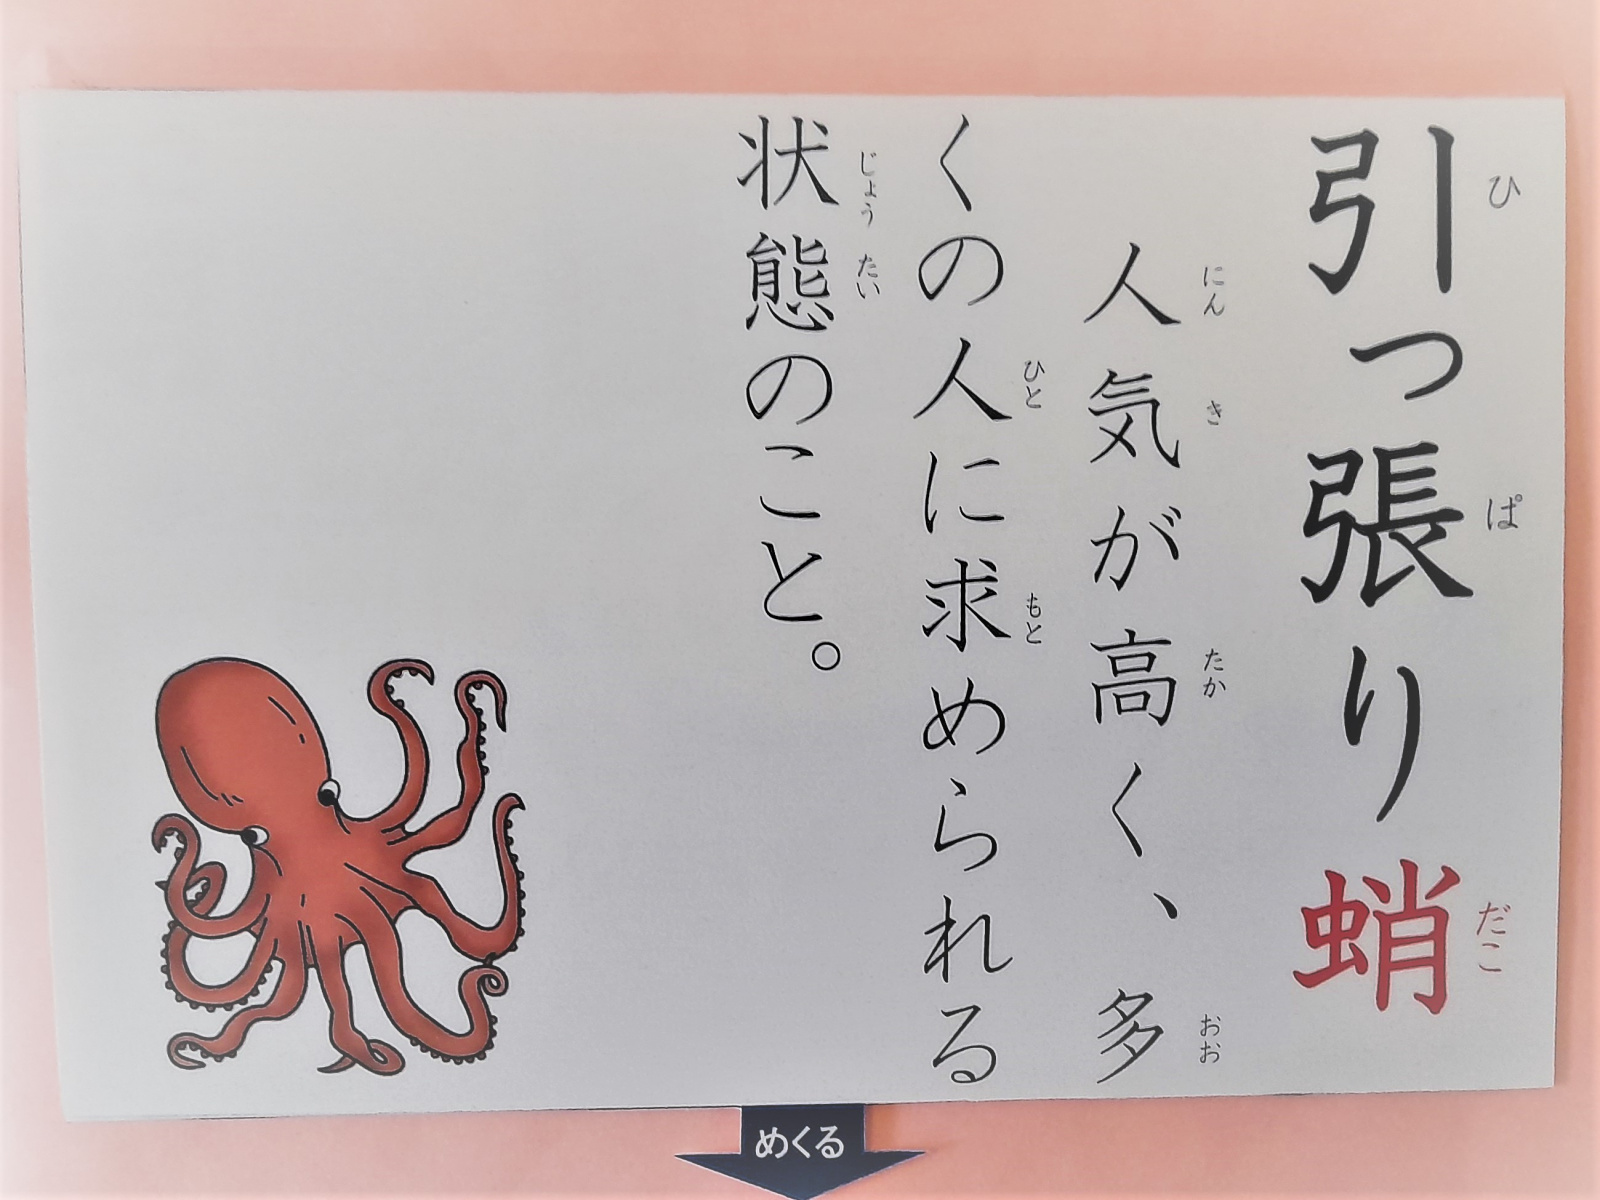 引っ張り蛸
ひぱだこ
人気が高く、多
にんきたかおお
くの人に求められる
ひともと
状態のこと。
じょうたい
めくる